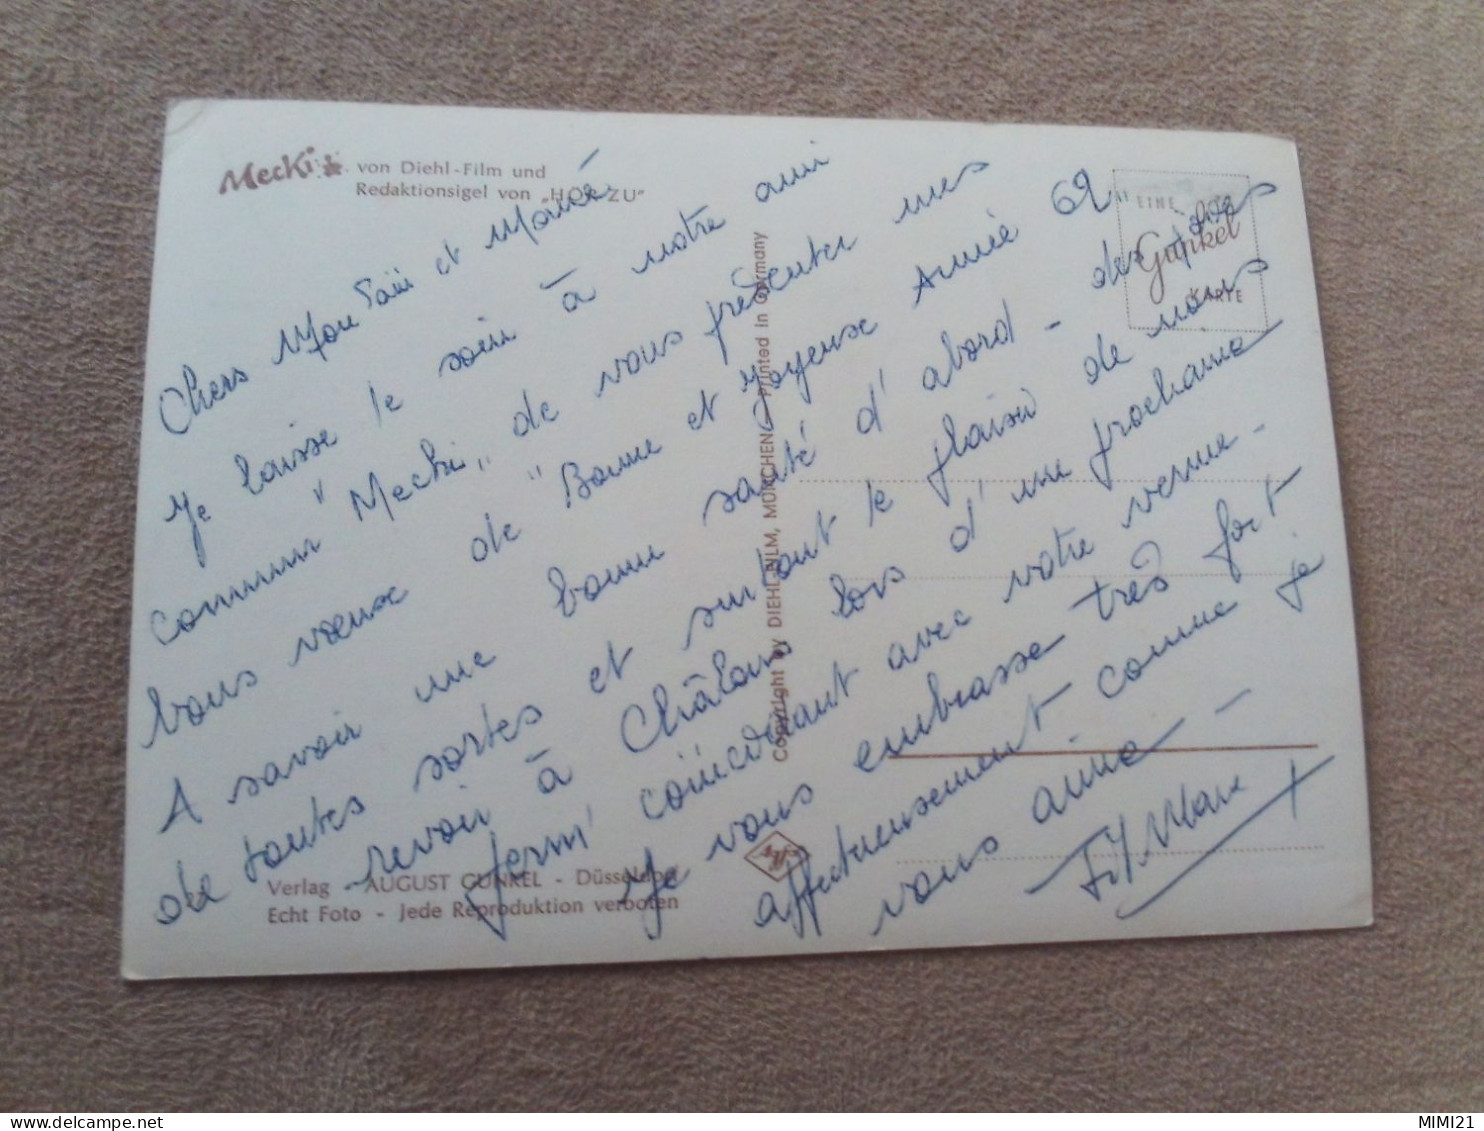 Mecki von Diehl-Film und
Redaktionsigel von „HÖR ZU"
EINE
Gunkel
KARTE
Chers et
Je laisse le soin à notre ami
commun "Mecki" de vous présenter mes
bons vœux de "Bonne et Joyeuse Année 62"
A savoir une bonne santé d'abord - des joies
de toutes sortes et surtout le plaisir de nous
revoir à Châlons lors d'une prochaine
perm' coïncidant avec votre venue -
Je vous embrasse très fort
affectueusement comme je
vous aime -
Copyright by DIEHL-FILM, MÜNCHEN - Printed in Germany
Verlag - AUGUST GUNKEL - Düsseldorf
Echt Foto - Jede Reproduktion verboten
MIMI21